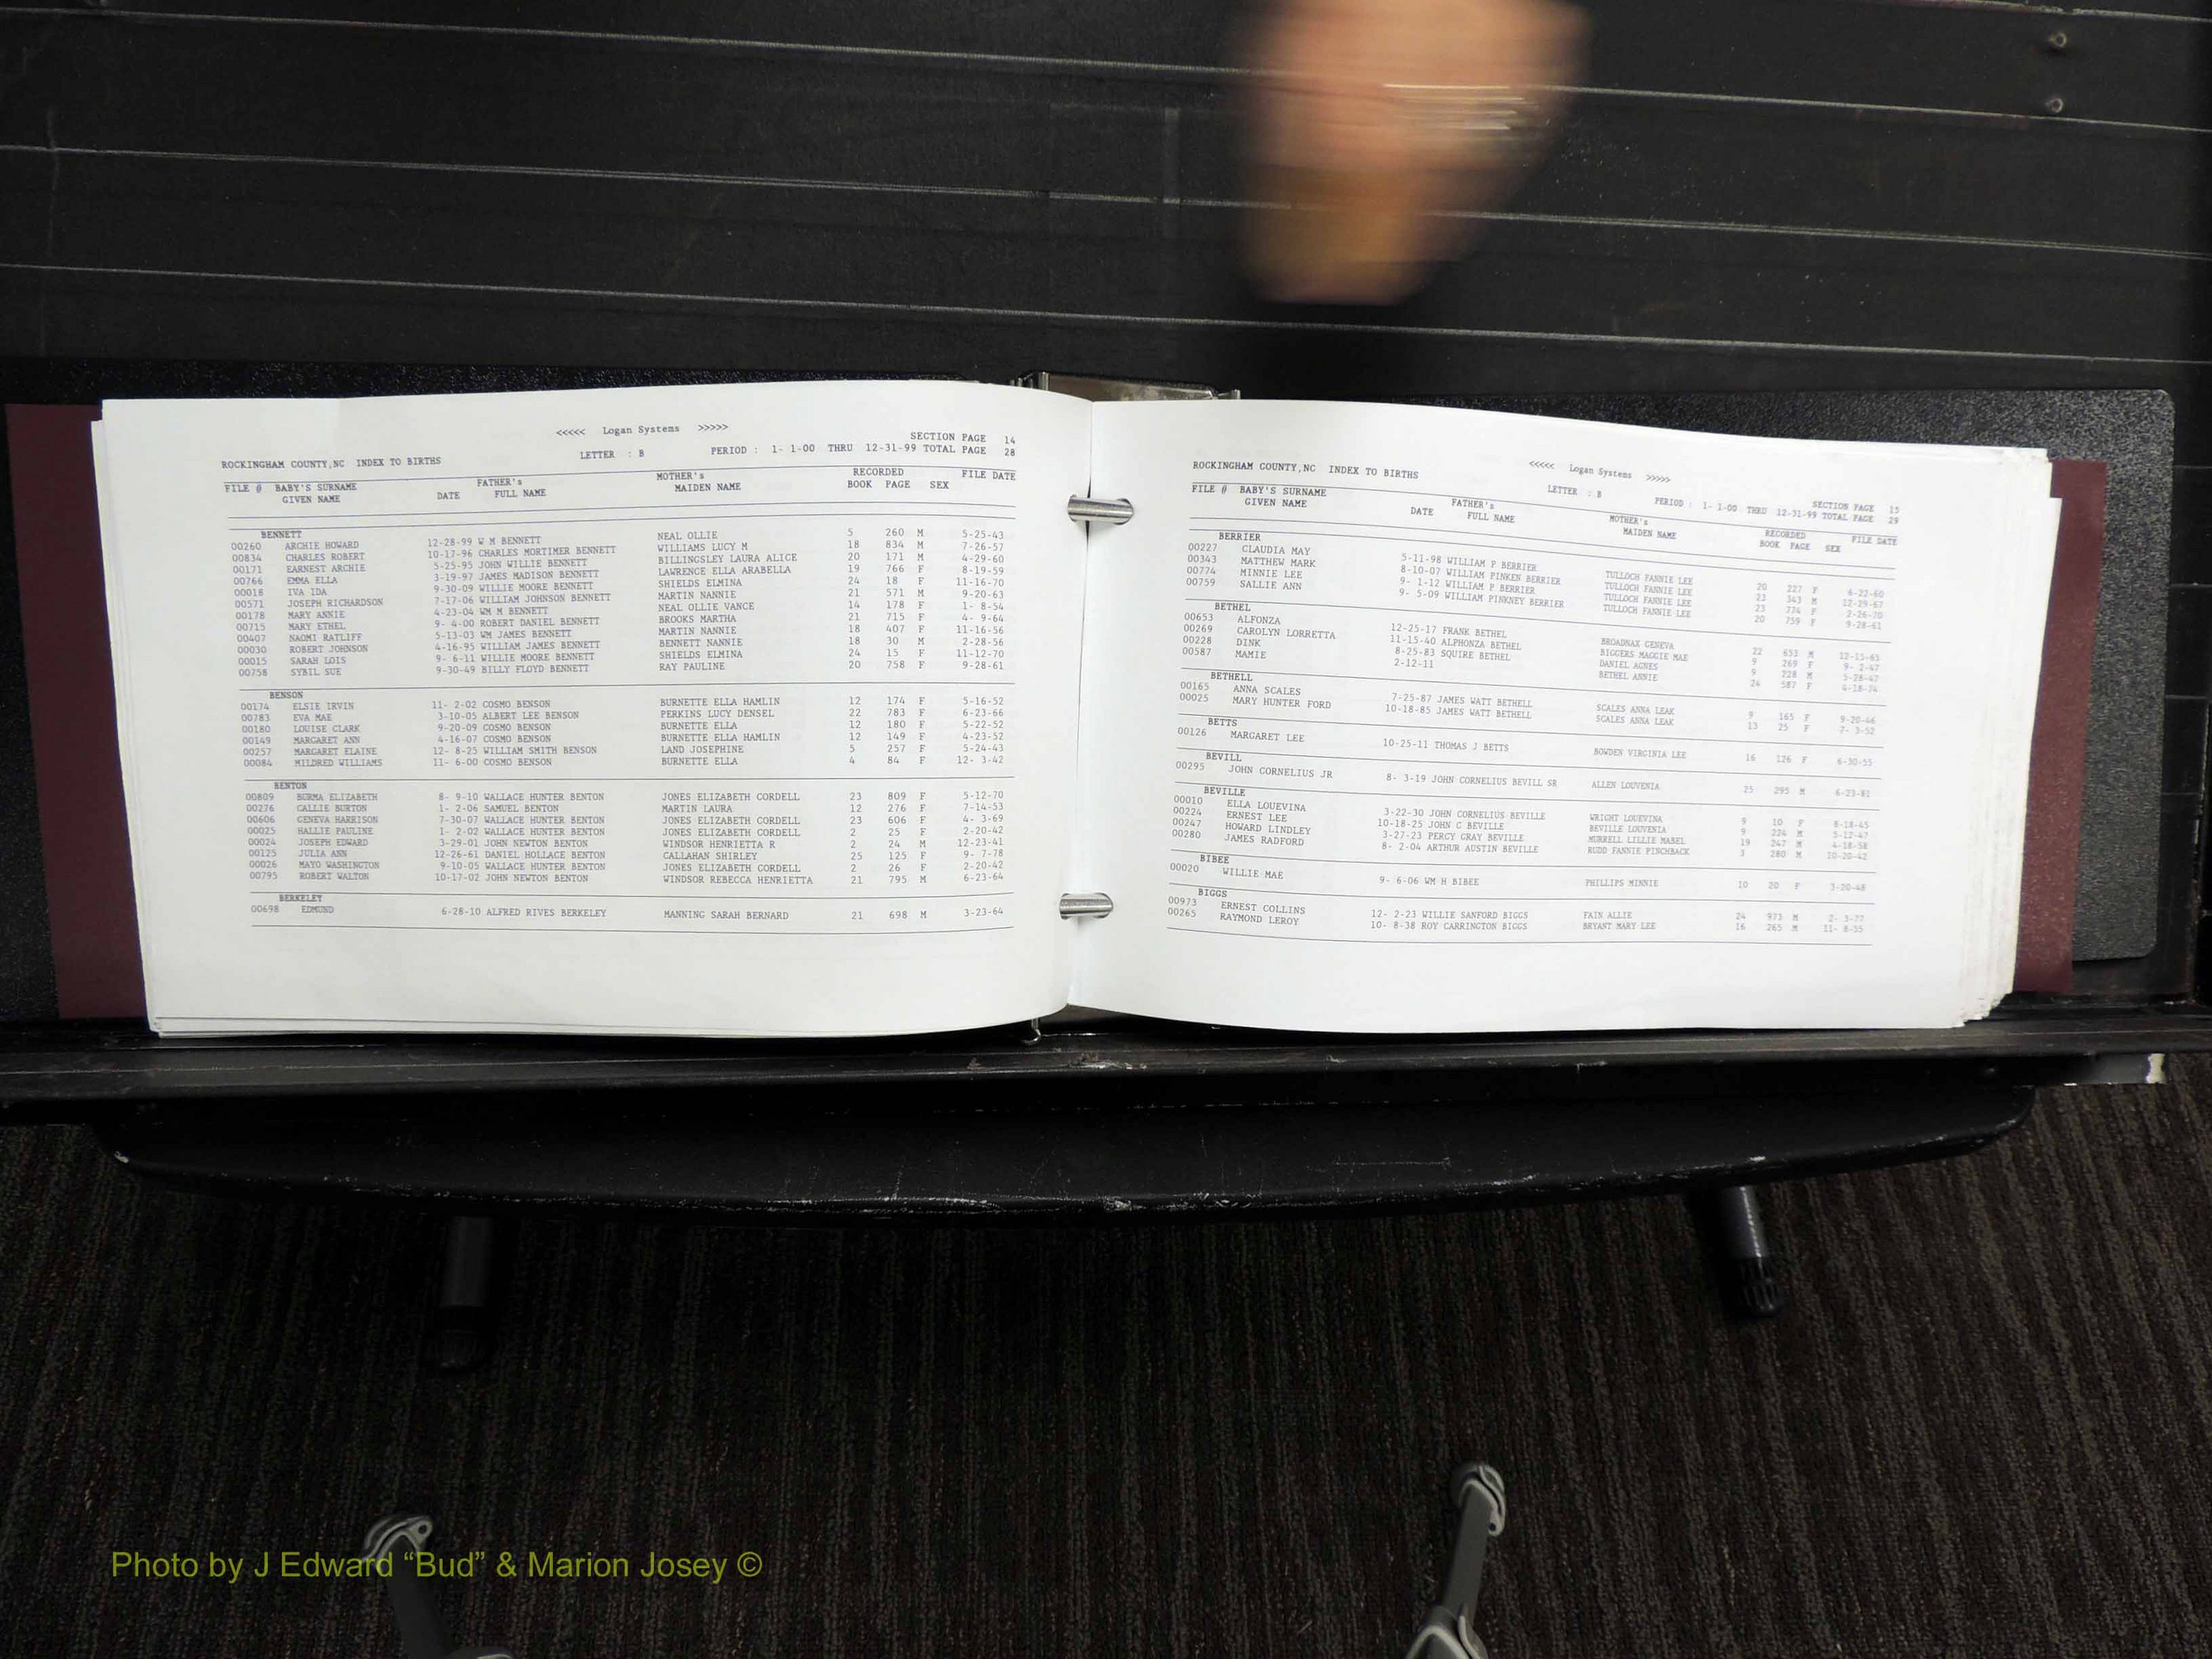 <<<<< Logan Systems >>>>>
SECTION PAGE 14
ROCKINGHAM COUNTY,NC INDEX TO BIRTHS LETTER : B PERIOD : 1- 1-00 THRU 12-31-99 TOTAL PAGE 28
FATHER's MOTHER's RECORDED FILE DATE
FILE # BABY'S SURNAME DATE FULL NAME MAIDEN NAME BOOK PAGE SEX
GIVEN NAME
BENNETT
00260 ARCHIE HOWARD 12-28-99 W M BENNETT NEAL OLLIE 5 260 M 5-25-43
00834 CHARLES ROBERT 10-17-96 CHARLES MORTIMER BENNETT WILLIAMS LUCY M 18 834 M 7-26-57
00171 EARNEST ARCHIE 5-25-95 JOHN WILLIE BENNETT BILLINGSLEY LAURA ALICE 20 171 M 4-29-60
00766 EMMA ELLA 3-19-97 JAMES MADISON BENNETT LAWRENCE ELLA ARABELLA 19 766 F 8-19-59
00018 IVA IDA 9-30-09 WILLIE MOORE BENNETT SHIELDS ELMINA 24 18 F 11-16-70
00571 JOSEPH RICHARDSON 7-17-06 WILLIAM JOHNSON BENNETT MARTIN NANNIE 21 571 M 9-20-63
00178 MARY ANNIE 4-23-04 WM M BENNETT NEAL OLLIE VANCE 14 178 F 1- 8-54
00715 MARY ETHEL 9- 4-00 ROBERT DANIEL BENNETT BROOKS MARTHA 21 715 F 4- 9-64
00407 NAOMI RATLIFF 5-13-03 WM JAMES BENNETT MARTIN NANNIE 18 407 F 11-16-56
00030 ROBERT JOHNSON 4-16-95 WILLIAM JAMES BENNETT BENNETT NANNIE 18 30 M 2-28-56
00015 SARAH LOIS 9- 6-11 WILLIE MOORE BENNETT SHIELDS ELMINA 24 15 F 11-12-70
00758 SYBIL SUE 9-30-49 BILLY FLOYD BENNETT RAY PAULINE 20 758 F 9-28-61
BENSON
00174 ELSIE IRVIN 11- 2-02 COSMO BENSON BURNETTE ELLA HAMLIN 12 174 F 5-16-52
00783 EVA MAE 3-10-05 ALBERT LEE BENSON PERKINS LUCY DENSEL 22 783 F 6-23-66
00180 LOUISE CLARK 9-20-09 COSMO BENSON BURNETTE ELLA 12 180 F 5-22-52
00149 MARGARET ANN 4-16-07 COSMO BENSON BURNETTE ELLA HAMLIN 12 149 F 4-23-52
00257 MARGARET ELAINE 12- 8-25 WILLIAM SMITH BENSON LAND JOSEPHINE 5 257 F 5-24-43
00084 MILDRED WILLIAMS 11- 6-00 COSMO BENSON BURNETTE ELLA 4 84 F 12- 3-42
BENTON
00809 BURMA ELIZABETH 8- 9-10 WALLACE HUNTER BENTON JONES ELIZABETH CORDELL 23 809 F 5-12-70
00276 CALLIE BURTON 1- 2-06 SAMUEL BENTON MARTIN LAURA 12 276 F 7-14-53
00606 GENEVA HARRISON 7-30-07 WALLACE HUNTER BENTON JONES ELIZABETH CORDELL 23 606 F 4- 3-69
00025 HALLIE PAULINE 1- 2-02 WALLACE HUNTER BENTON JONES ELIZABETH CORDELL 2 25 F 2-20-42
00024 JOSEPH EDWARD 3-29-01 JOHN NEWTON BENTON WINDSOR HENRIETTA R 2 24 M 12-23-41
00125 JULIA ANN 12-26-61 DANIEL HOLLACE BENTON CALLAHAN SHIRLEY 25 125 F 9- 7-78
00026 MAYO WASHINGTON 9-10-05 WALLACE HUNTER BENTON JONES ELIZABETH CORDELL 2 26 F 2-20-42
00795 ROBERT WALTON 10-17-02 JOHN NEWTON BENTON WINDSOR REBECCA HENRIETTA 21 795 M 6-23-64
BERKELEY
00698 EDMUND 6-28-10 ALFRED RIVES BERKELEY MANNING SARAH BERNARD 21 698 M 3-23-64
<<<<< Logan Systems >>>>>
SECTION PAGE 15
ROCKINGHAM COUNTY,NC INDEX TO BIRTHS LETTER : B PERIOD : 1- 1-00 THRU 12-31-99 TOTAL PAGE 29
FATHER's MOTHER's RECORDED FILE DATE
FILE # BABY'S SURNAME DATE FULL NAME MAIDEN NAME BOOK PAGE SEX
GIVEN NAME
BERRIER
00227 CLAUDIA MAY 5-11-98 WILLIAM P BERRIER TULLOCH FANNIE LEE 20 227 F 6-22-60
00343 MATTHEW MARK 8-10-07 WILLIAM PINKEN BERRIER TULLOCH FANNIE LEE 23 343 M 12-29-67
00774 MINNIE LEE 9- 1-12 WILLIAM P BERRIER TULLOCH FANNIE LEE 23 774 F 2-26-70
00759 SALLIE ANN 9- 5-09 WILLIAM PINKNEY BERRIER TULLOCH FANNIE LEE 20 759 F 9-28-61
BETHEL
00653 ALFONZA 12-25-17 FRANK BETHEL BROADNAX GENEVA 22 653 M 12-15-65
00269 CAROLYN LORRETTA 11-15-40 ALPHONZA BETHEL BIGGERS MAGGIE MAE 9 269 F 9- 2-47
00228 DINK 8-25-83 SQUIRE BETHEL DANIEL AGNES 9 228 M 5-28-47
00587 MAMIE 2-12-11 BETHEL ANNIE 24 587 F 4-18-74
BETHELL
00165 ANNA SCALES 7-25-87 JAMES WATT BETHELL SCALES ANNA LEAK 9 165 F 9-20-46
00025 MARY HUNTER FORD 10-18-85 JAMES WATT BETHELL SCALES ANNA LEAK 13 25 F 7- 3-52
BETTS
00126 MARGARET LEE 10-25-11 THOMAS J BETTS BOWDEN VIRGINIA LEE 16 126 F 6-30-55
BEVILL
00295 JOHN CORNELIUS JR 8- 3-19 JOHN CORNELIUS BEVILL SR ALLEN LOUVENIA 25 295 M 6-23-81
BEVILLE
00010 ELLA LOUEVINA 3-22-30 JOHN CORNELIUS BEVILLE WRIGHT LOUEVINA 9 10 F 8-18-45
00224 ERNEST LEE 10-18-25 JOHN C BEVILLE BEVILLE LOUVENIA 9 224 M 5-12-47
00247 HOWARD LINDLEY 3-27-23 PERCY GRAY BEVILLE MURRELL LILLIE MABEL 19 247 M 4-18-58
00280 JAMES RADFORD 8- 2-04 ARTHUR AUSTIN BEVILLE RUDD FANNIE PINCHBACK 3 280 M 10-20-42
BIBEE
00020 WILLIE MAE 9- 6-06 WM H BIBEE PHILLIPS MINNIE 10 20 F 3-20-48
BIGGS
00973 ERNEST COLLINS 12- 2-23 WILLIE SANFORD BIGGS FAIN ALLIE 24 973 M 2- 3-77
00265 RAYMOND LEROY 10- 8-38 ROY CARRINGTON BIGGS BRYANT MARY LEE 16 265 M 11- 8-55
Photo by J Edward “Bud” & Marion Josey ©